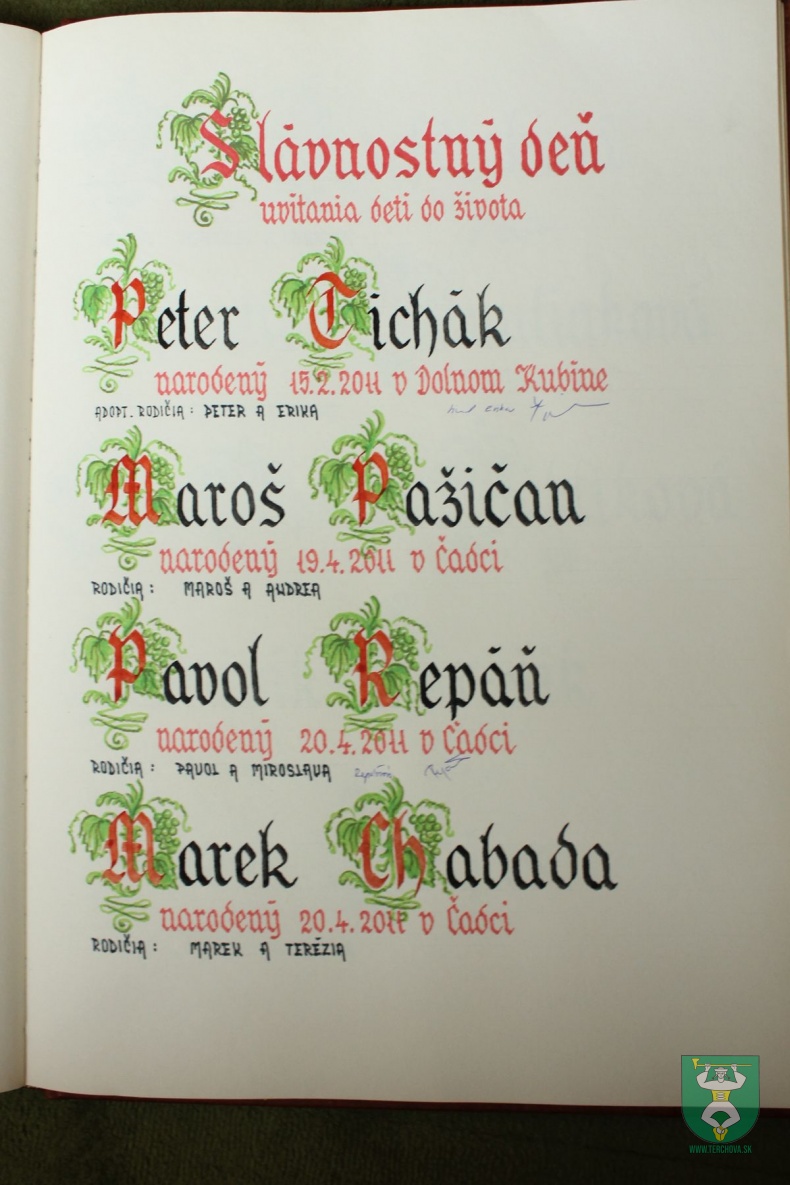 Slávnostný deň
uvítania detí do života
Peter Tichák
narodený 15.2.2011 v Dolnom Kubíne
ADOPT. RODIČIA: PETER A ERIKA
Maroš Pažičan
narodený 19.4.2011 v Čadci
RODIČIA: MAROŠ A ANDREA
Pavol Repáň
narodený 20.4.2011 v Čadci
RODIČIA: PAVOL A MIROSLAVA
Marek Chabada
narodený 20.4.2011 v Čadci
RODIČIA: MAREK A TERÉZIA
WWW.TERCHOVA.SK